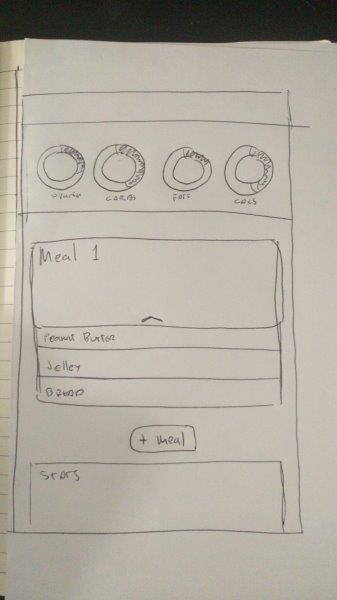 CARBS
FATS
CALS
Meal 1
Peanut Butter
Jelley
BREAD
+ meal
STATS